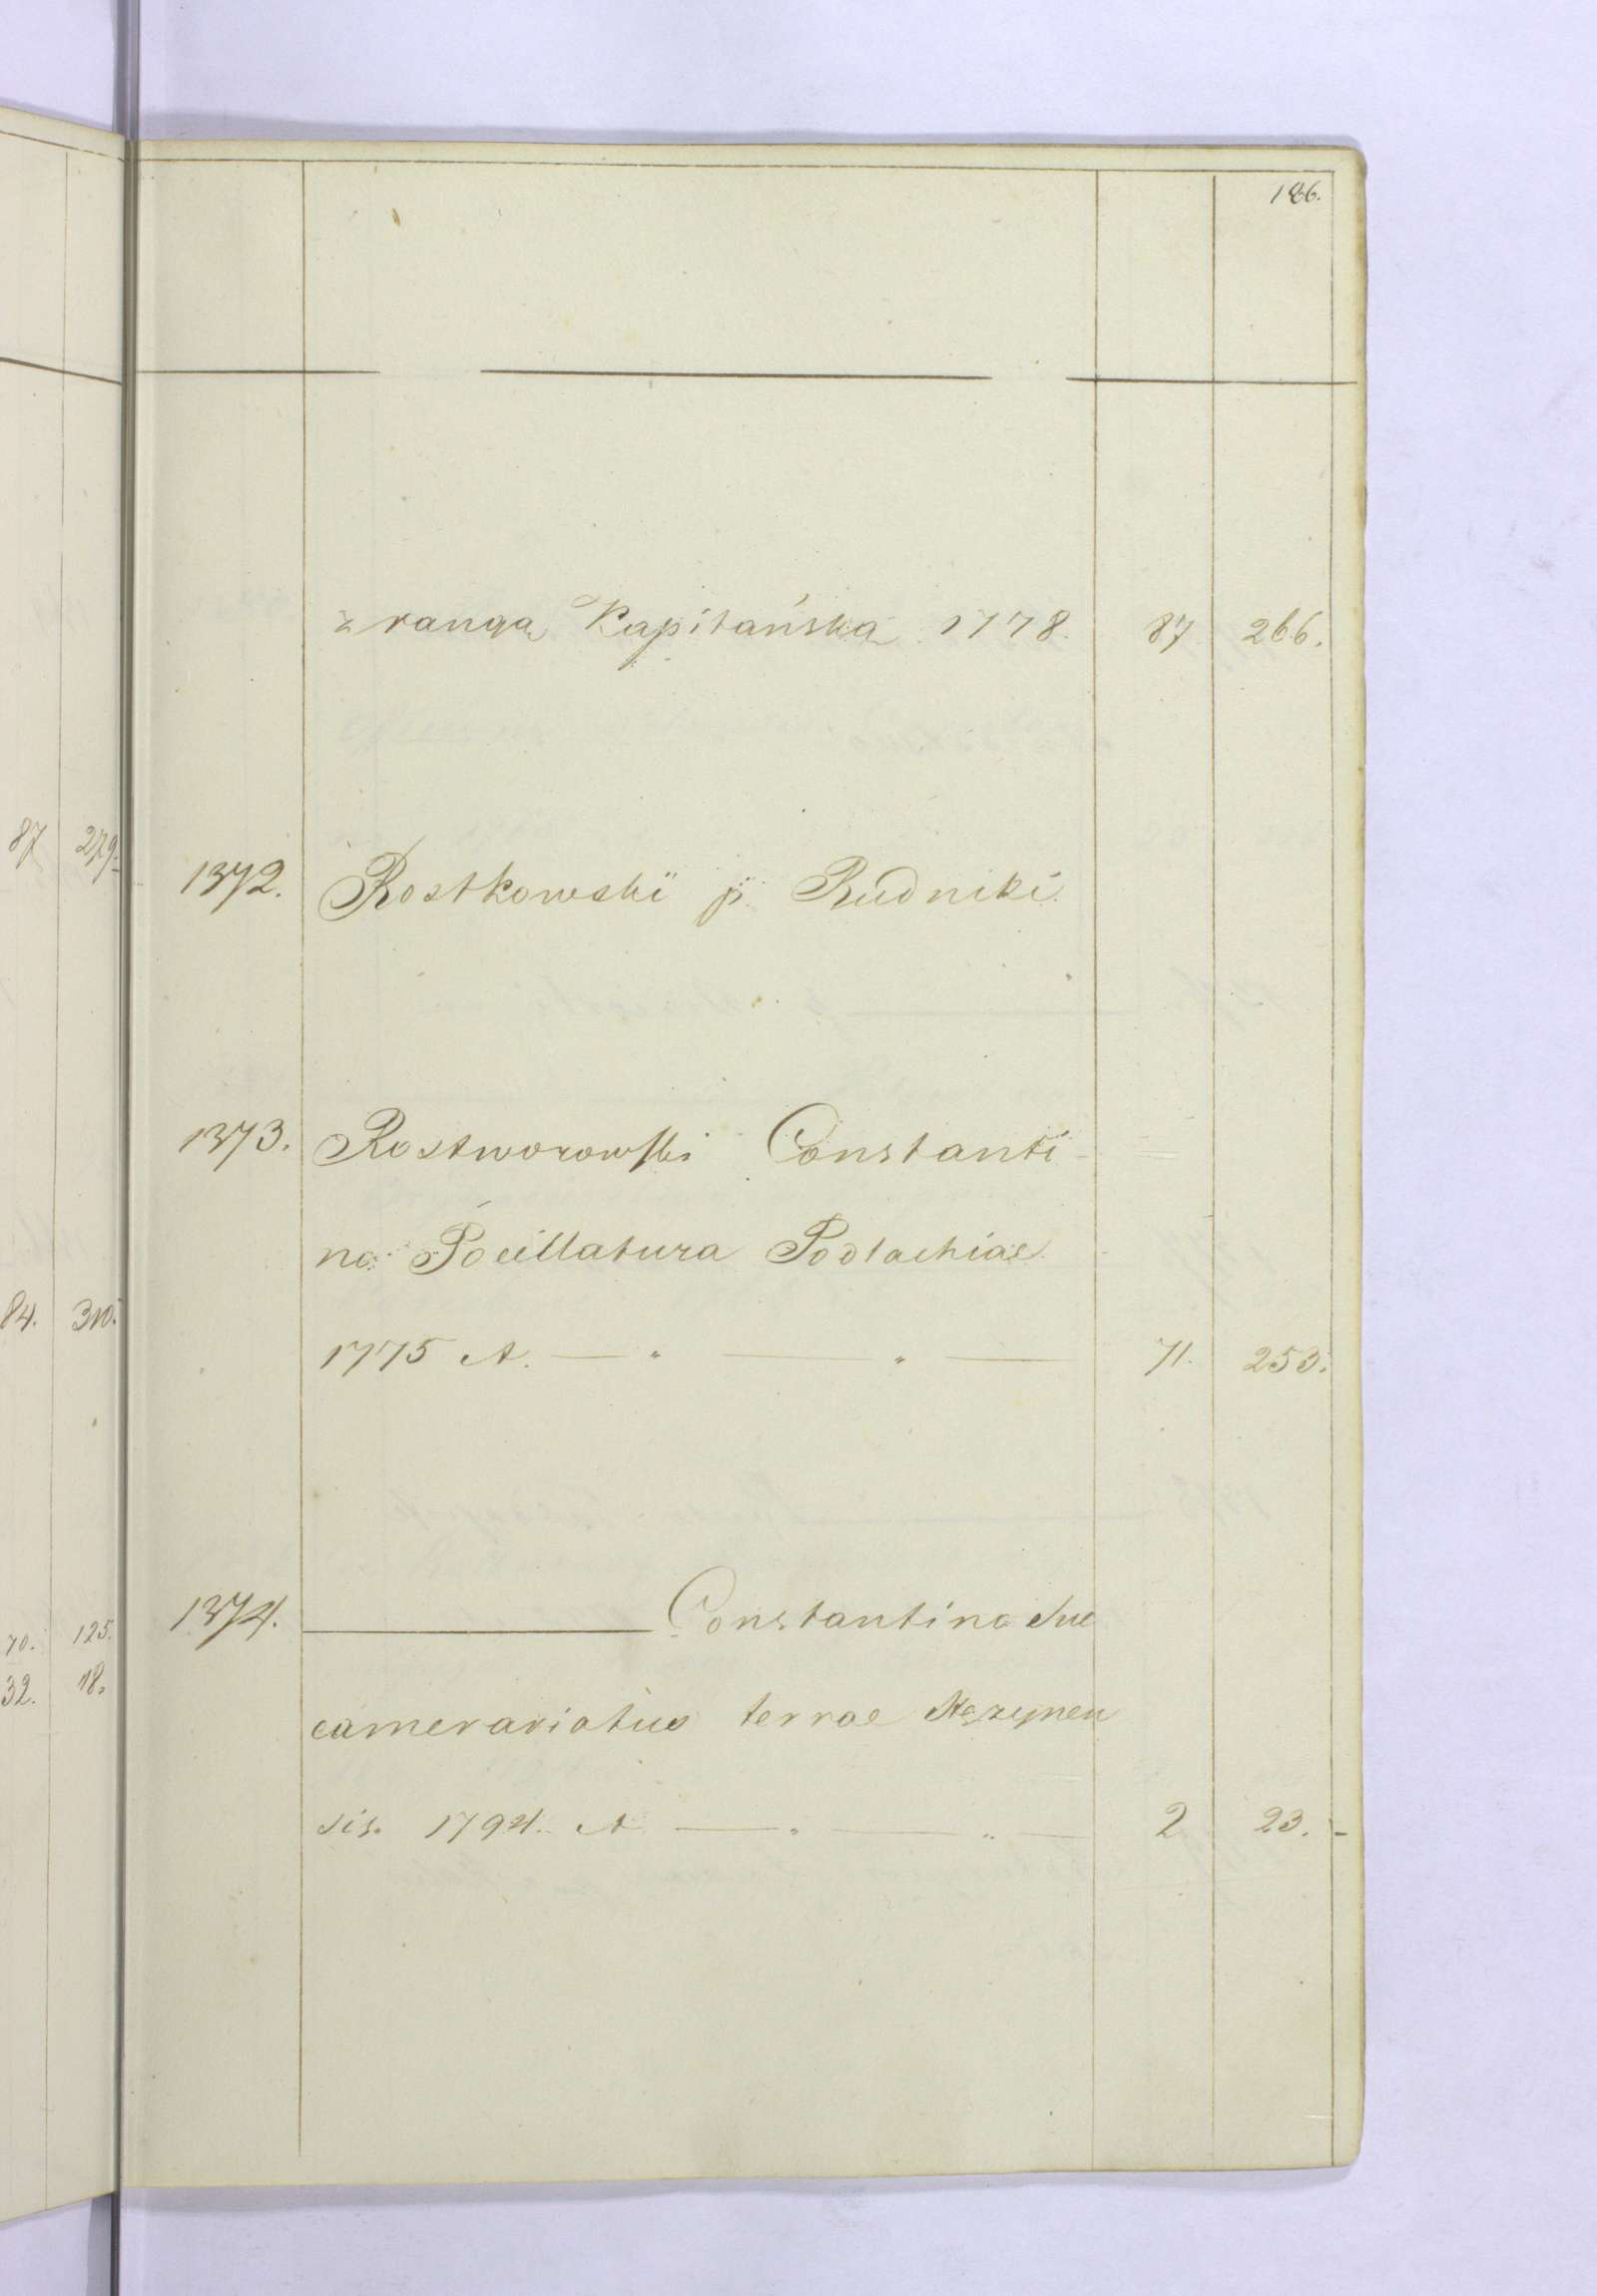 186.
z rangą Kapitańską 1778. 87 266.
87 279.
1372. Rostkowski p. Rudniki.
1373. Rostworowski Constanti-
no Pocillatura Podlachiae
84. 310.
1775 A. — " — " — 71. 253.
1374. ——— Constantino Suc
70. 125.
32. 18.
camerariatus terrae
sis. 1794. A — " — " — 2 23. -